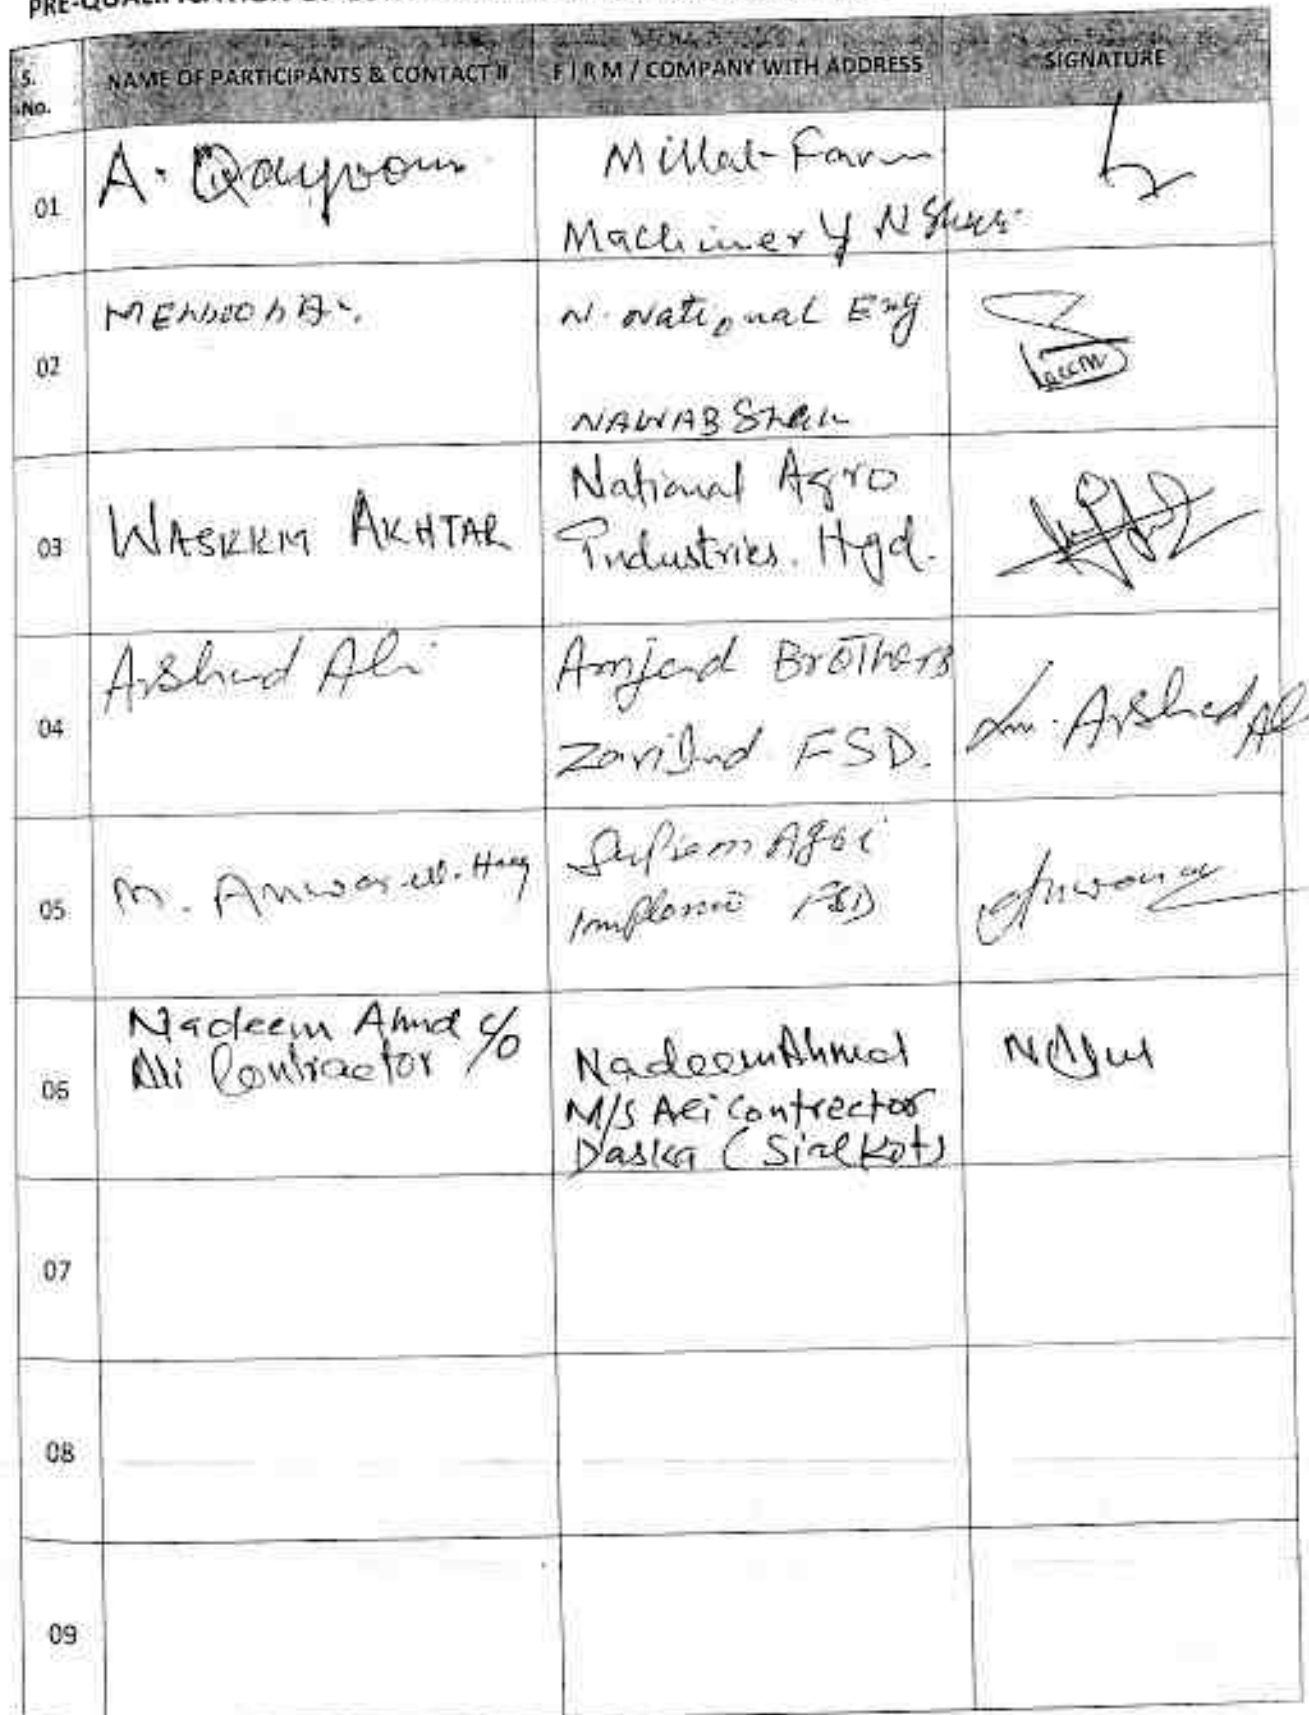 PRE-QUALIFICATION OF
S. No.
NAME OF PARTICIPANTS & CONTACT #
F I R M / COMPANY WITH ADDRESS
SIGNATURE
01
A. Qayoom
Millat Farm
Machinery N Shah
02
N. National Eng
NAWABShah
03
WASEEM AKHTAR
National Agro
Industries. Hyd.
04
Arshad Ali
Amjad BroTHers
FSD.
M. Arshad Ali
05
M. Anwar-ul-Haq
FSD
Anwar
06
Nadeem Ahmd c/o
Ali Contractor
Nadeem Ahmed
M/S Ali Contrector
Daska (Sialkot)
07
08
09